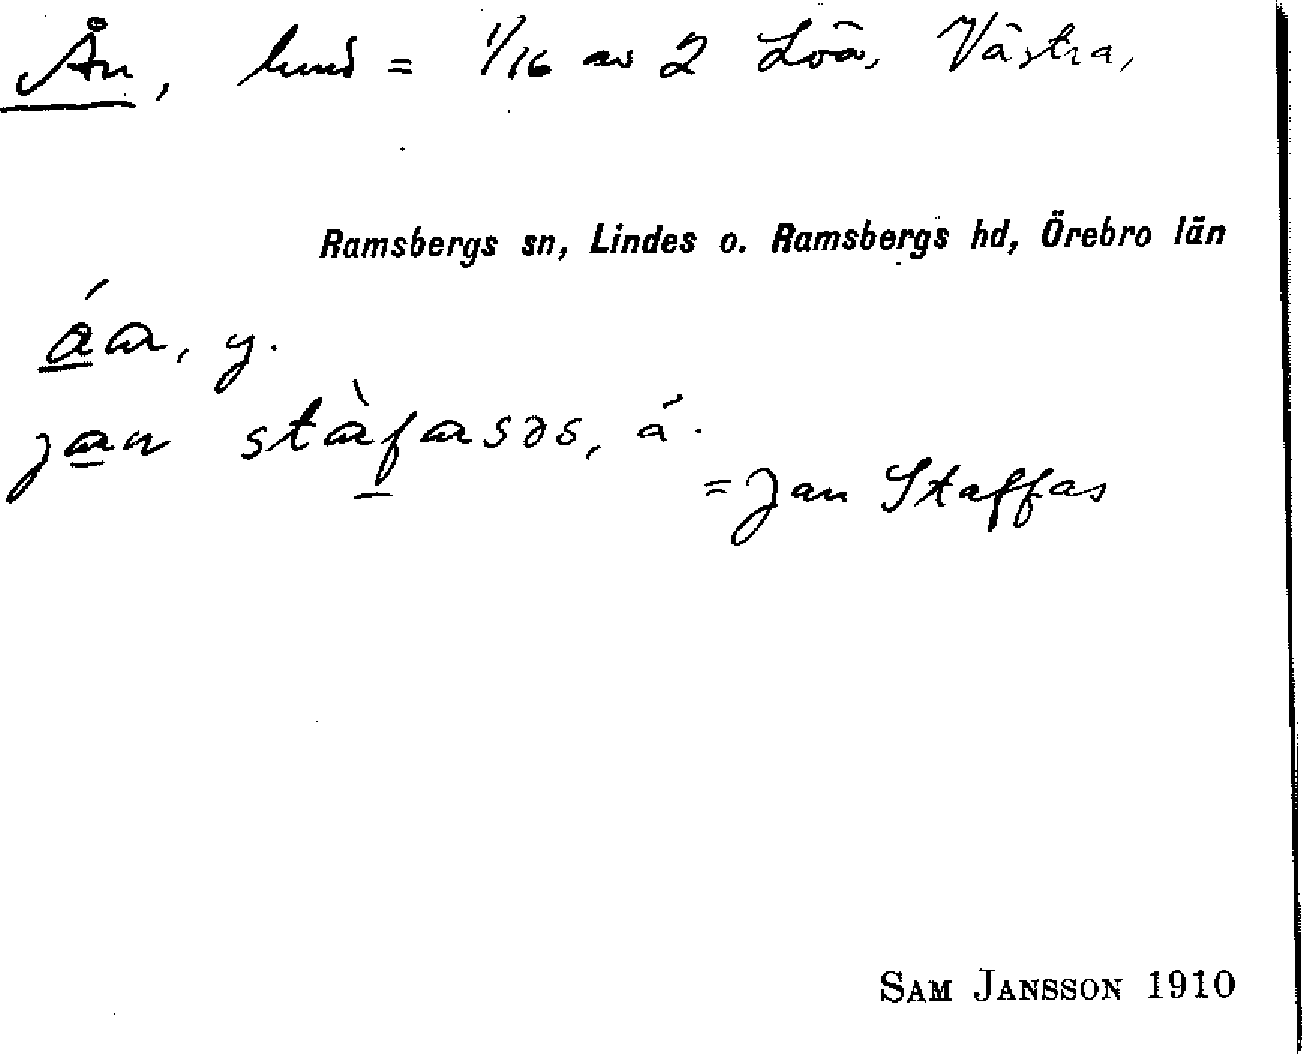 Ån, hmd = 1/16 av 2 Löa, Västra,
Ramsbergs sn, Lindes o. Ramsbergs hd, Örebro län
áa, y.
jan stàfasəs, á.
= Jan Staffas
SAM JANSSON 1910